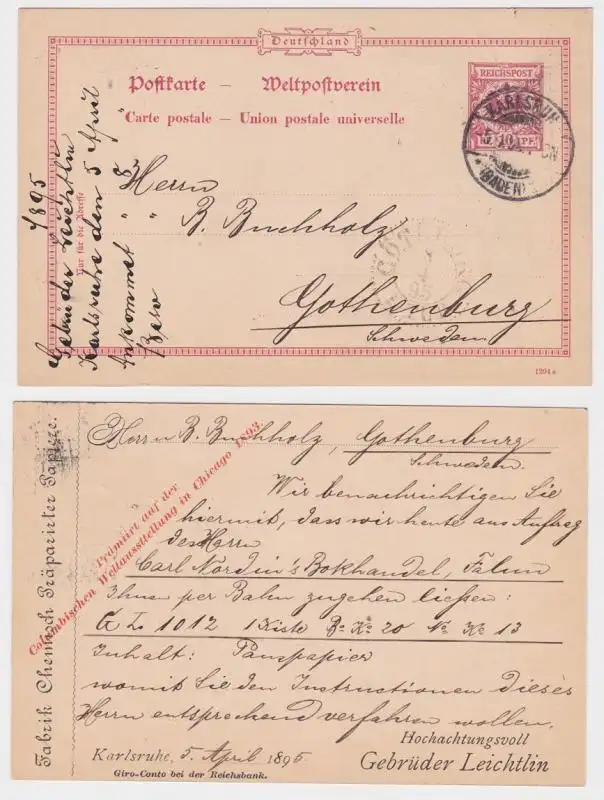 Deutschland
Postkarte — Weltpostverein
Carte postale — Union postale universelle
REICHSPOST
10 PF.
KARLSRUHE
(BADEN)
Nur für die Adresse
1895
Gebrüder Leichtlin
Karlsruhe den 5 April
Ankommet 8
Herrn
B. Buchholz
Gothenburg
Schweden
1294a
Herrn B. Buchholz, Gothenburg
Schweden.
Wir benachrichtigen Sie
hiermit, dass wir heute aus Auftrag
des Herrn
Carl Nordin's Bokhandel, Falun
Ihnen per Bahn zugehen ließen:
G L 1012 1 Kiste Bo Ko 20 No Ko 13
Inhalt: Pauspapier
womit Sie den Instructionen dieses
Herrn entsprechend verfahren wollen.
Hochachtungsvoll
Karlsruhe, 5. April 1895
Gebrüder Leichtlin
Giro-Conto bei der Reichsbank.
Fabrik Chemisch Präparirter Papiere.
Prämiirt auf der
Columbischen Weltausstellung in Chicago 1893.